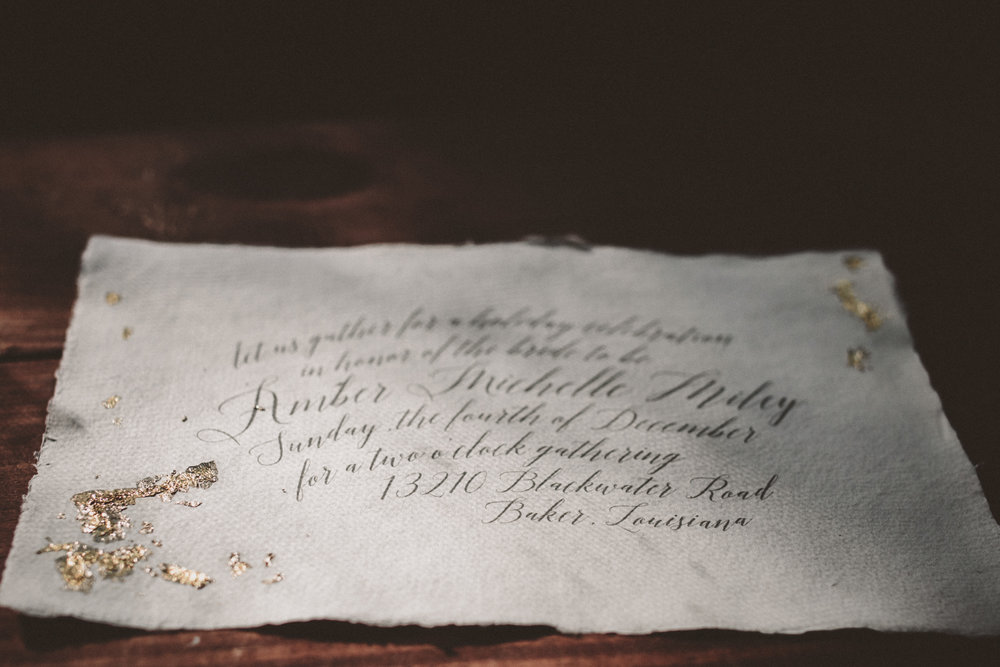 let us gather for a holiday celebration
in honor of the bride to be
Amber Michelle Miley
Sunday, the fourth of December
for a two o'clock gathering
13210 Blackwater Road
Baker, Louisiana